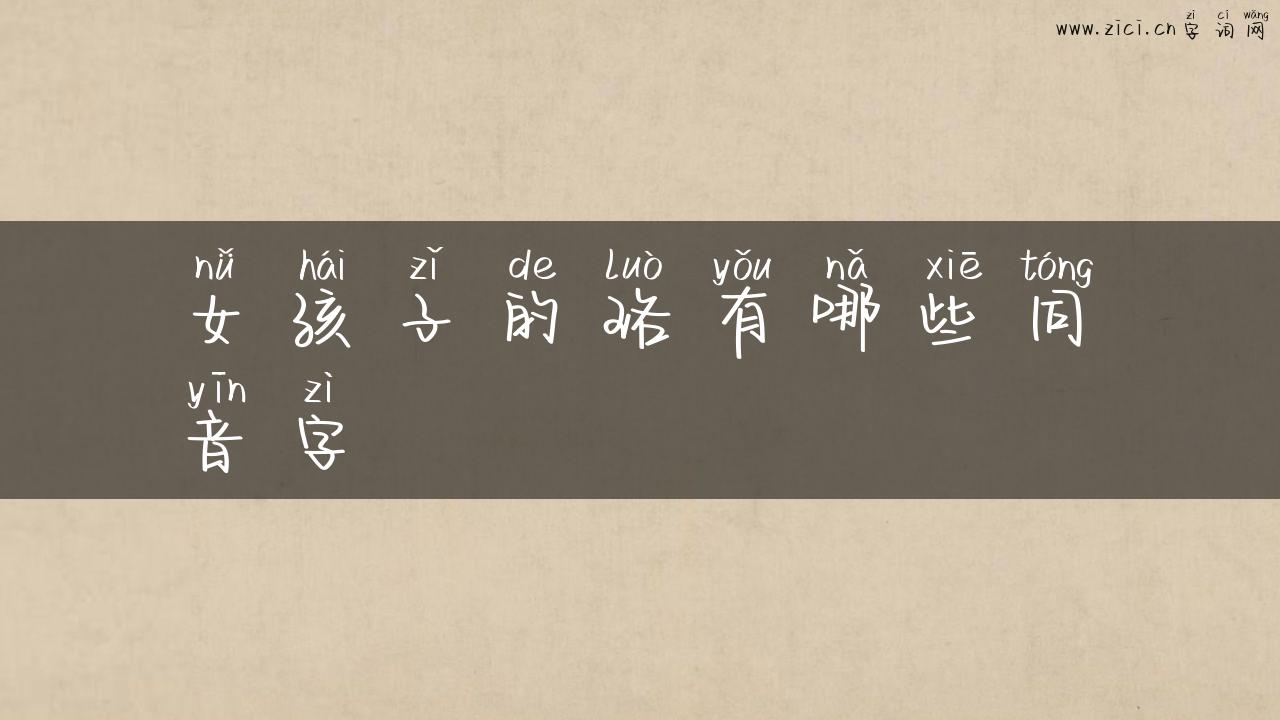 zì cí wǎng
www.zici.cn 字词网
nǚ hái zǐ de luò yǒu nǎ xiē tóng
女孩子的珞有哪些同
yīn zì
音字